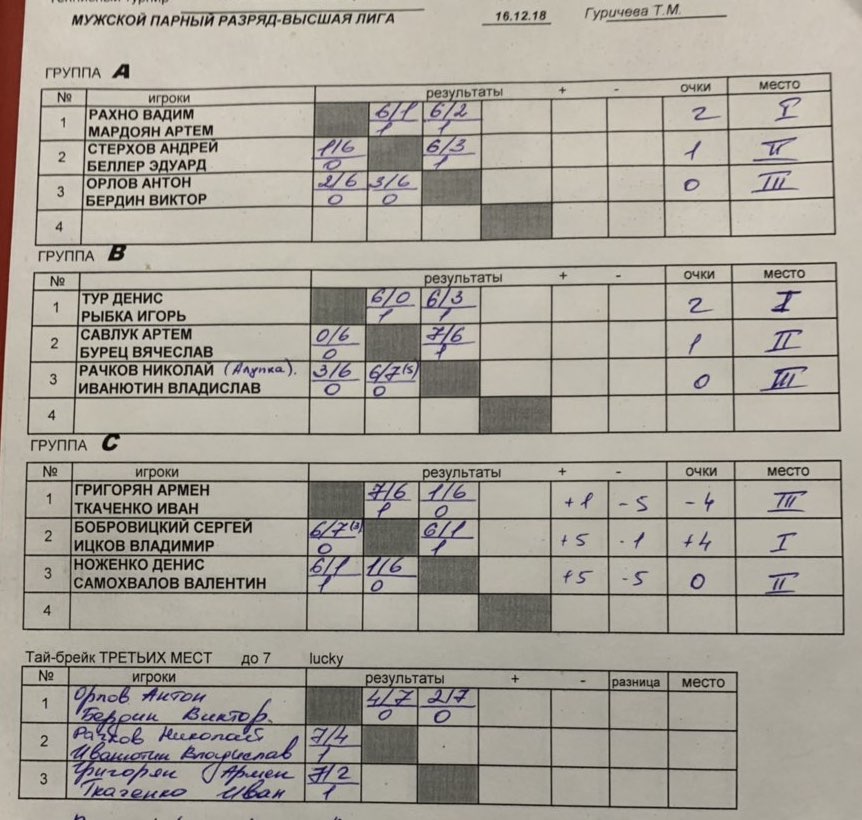 МУЖСКОЙ ПАРНЫЙ РАЗРЯД-ВЫСШАЯ ЛИГА 16.12.18 Гуричева Т.М.
ГРУППА A
№ игроки результаты + - очки место
1 РАХНО ВАДИМ 6/1 6/2 2 I
МАРДОЯН АРТЕМ 1 1
2 СТЕРХОВ АНДРЕЙ 1/6 6/3 1 II
БЕЛЛЕР ЭДУАРД 0 1
3 ОРЛОВ АНТОН 2/6 3/6 0 III
БЕРДИН ВИКТОР 0 0
4
ГРУППА B
№ результаты + - очки место
1 ТУР ДЕНИС 6/0 6/3 2 I
РЫБКА ИГОРЬ 1 1
2 САВЛУК АРТЕМ 0/6 7/6 1 II
БУРЕЦ ВЯЧЕСЛАВ 0 1
3 РАЧКОВ НИКОЛАЙ (Алупка). 3/6 6/7(5) 0 III
ИВАНЮТИН ВЛАДИСЛАВ 0 0
4
ГРУППА C
№ игроки результаты + - очки место
1 ГРИГОРЯН АРМЕН 7/6 1/6 +1 -5 -4 III
ТКАЧЕНКО ИВАН 1 0
2 БОБРОВИЦКИЙ СЕРГЕЙ 6/7(3) 6/1 +5 -1 +4 I
ИЦКОВ ВЛАДИМИР 0 1
3 НОЖЕНКО ДЕНИС 6/1 1/6 +5 -5 0 II
САМОХВАЛОВ ВАЛЕНТИН 1 0
4
Тай-брейк ТРЕТЬИХ МЕСТ до 7 lucky
№ игроки результаты + - разница место
1 Орлов Антон 4/7 2/7
Бердин Виктор. 0 0
2 Рачков Николай 7/4
Иванютин Владислав 1
3 Григорян Армен 7/2
Ткаченко Иван 1